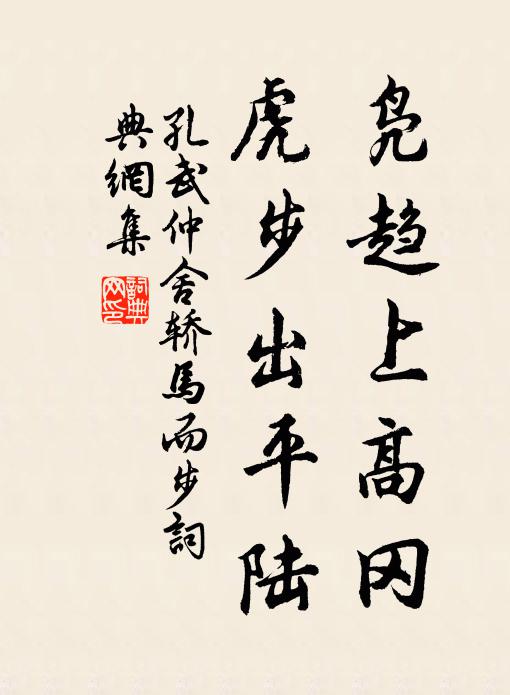 凫趋上高冈
虎步出平陆
孔武仲舍轿馬而步詞
典網集
詞典网印